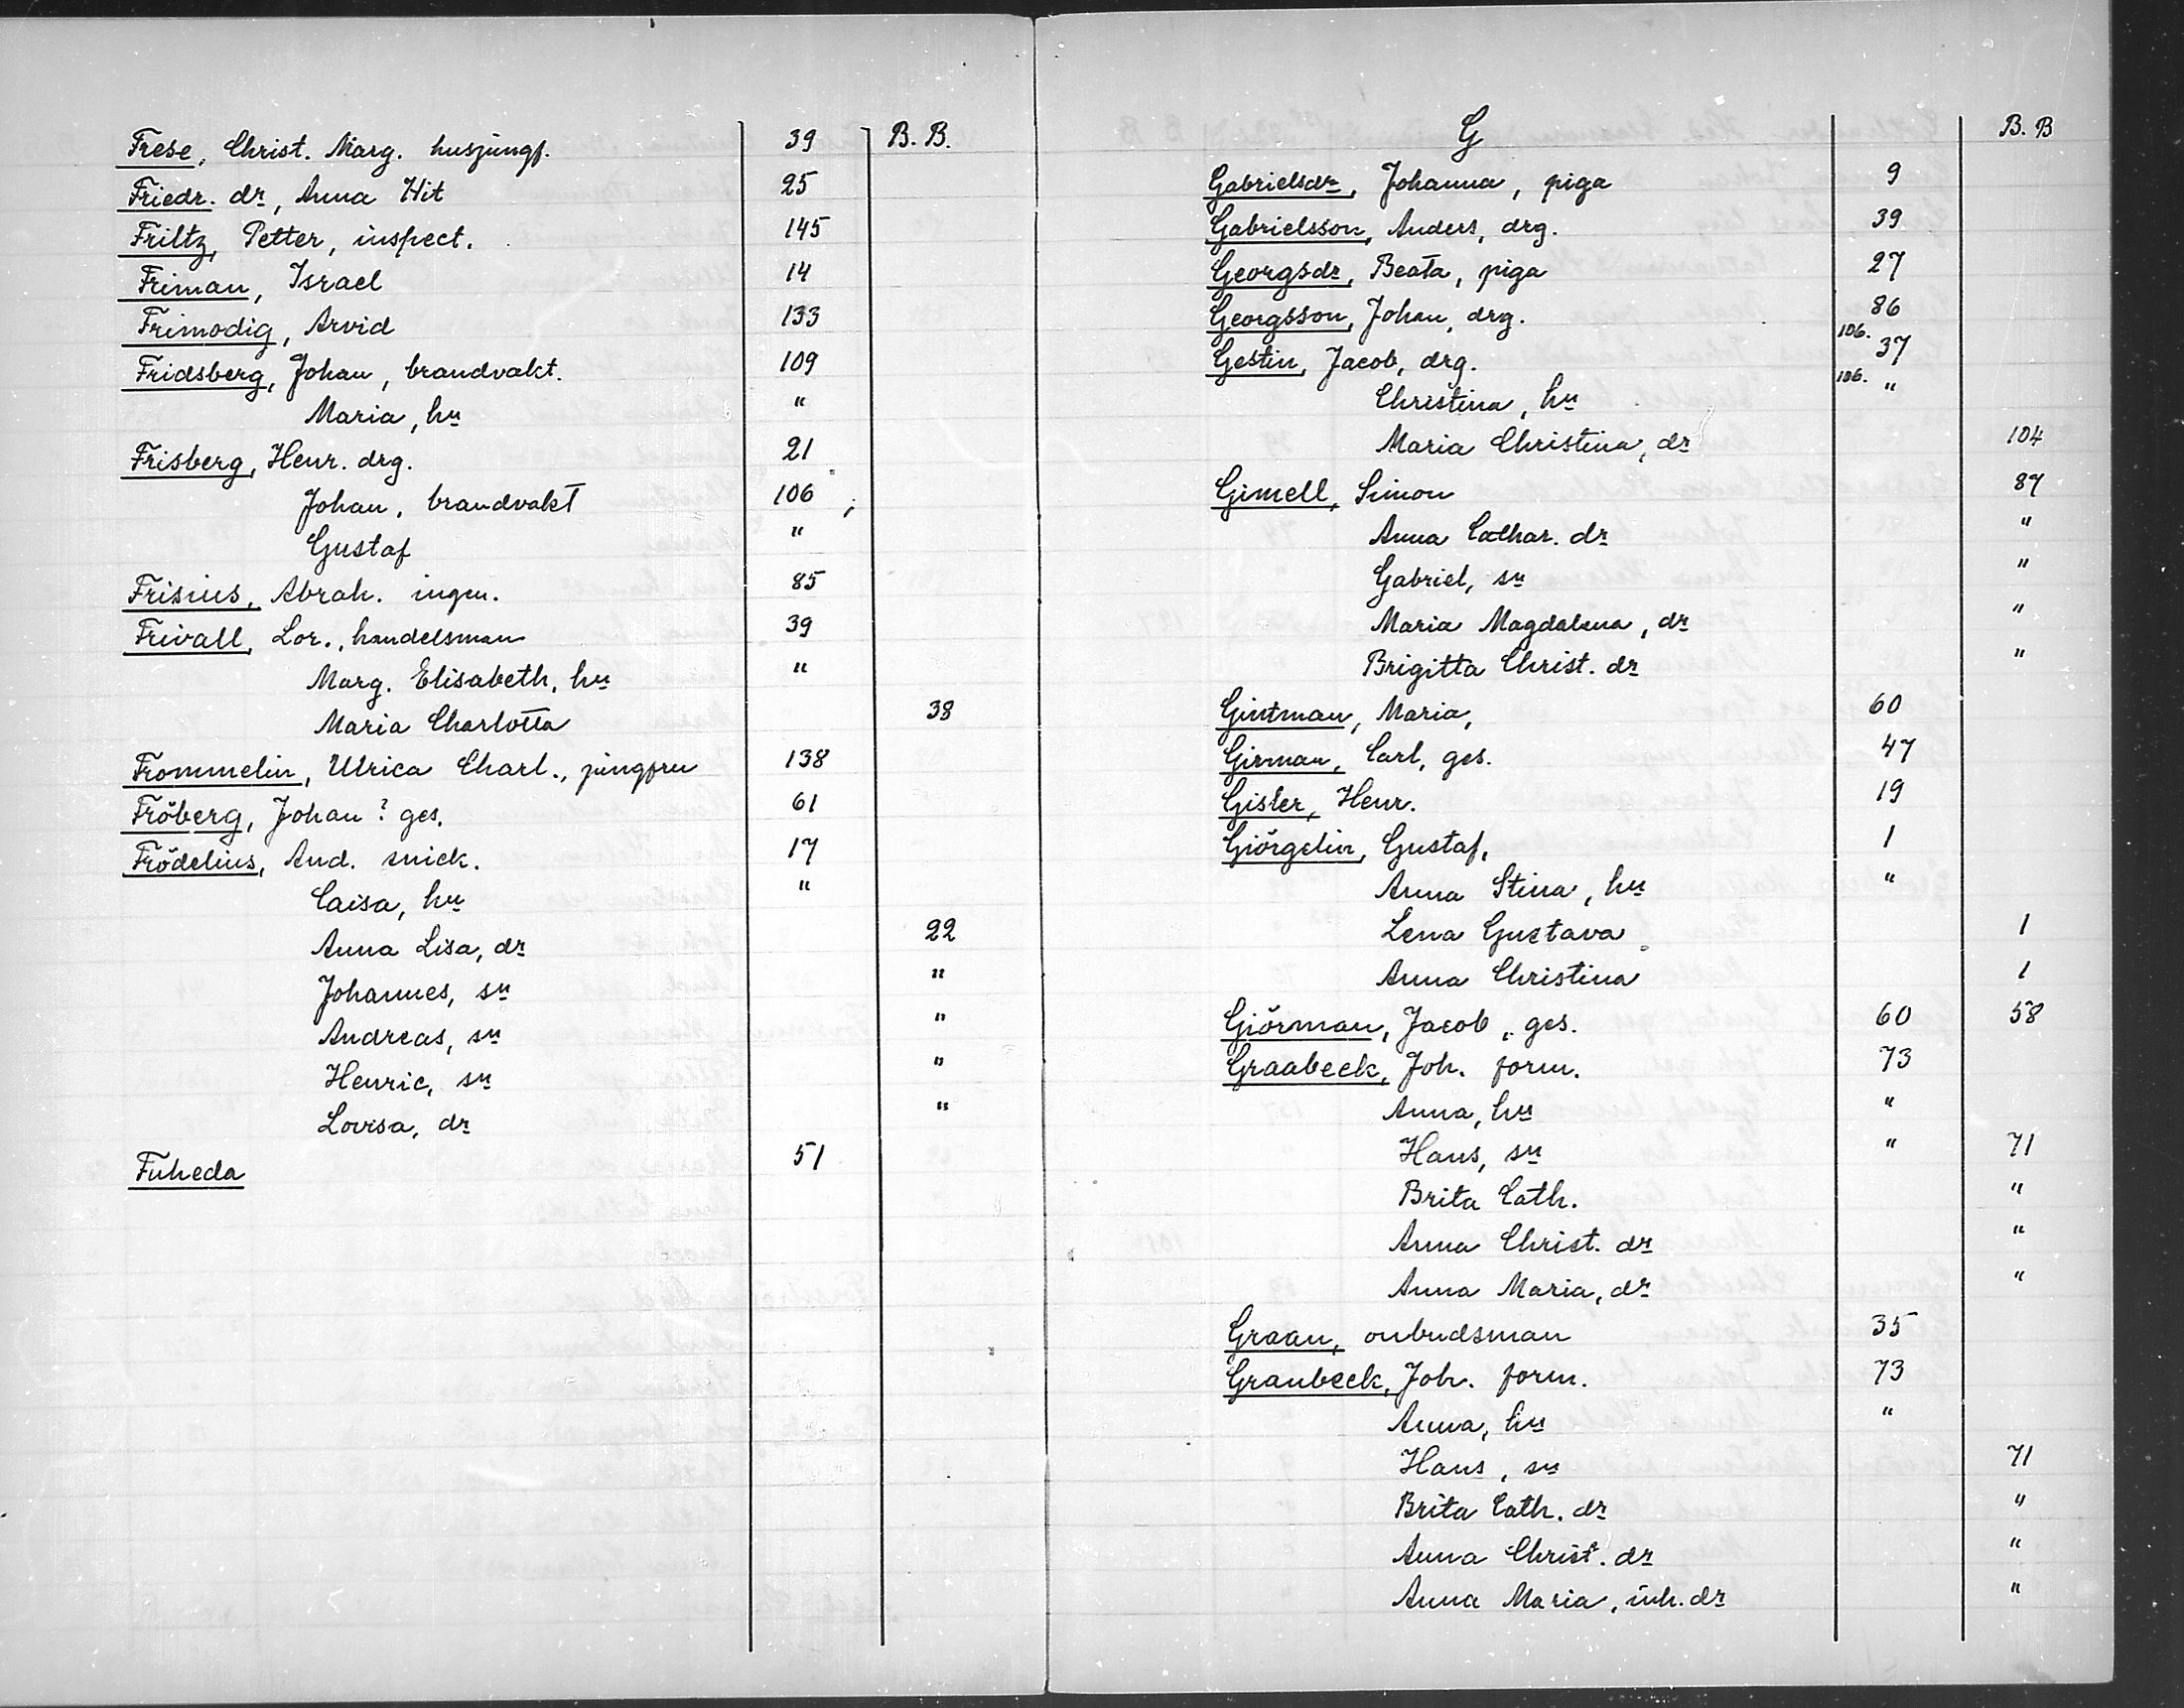 Frese, Christ. Marg. husjungf. 39 B. B.
Friedr. dr, Anna Hit 25
Friltz, Petter, inspect. 145
Friman, Israel 14
Frimodig, Arvid 133
Fridsberg, Johan, brandvakt. 109
Maria, hu "
Frisberg, Henr. drg. 21
Johan, brandvakt 106
Gustaf "
Frisius, Abrah. ingen. 85
Frivall, Lor., handelsman 39
Marg. Elisabeth, hu "
Maria Charlotta 38
Frommelin, Ulrica Charl., jungfru 138
Fröberg, Johan ? ges. 61
Frödelius, And. snick. 17
Caisa, hu "
Anna Lisa, dr 22
Johannes, sn "
Andreas, sn "
Henric, sn "
Lovisa, dr "
Fuheda 51
G B. B
Gabrielsdr, Johanna, piga 9
Gabrielsson, Anders, drg. 39
Georgsdr, Beata, piga 27
Georgsson, Johan, drg. 86
Gestin, Jacob, drg. 106. 37
Christina, hu 106. "
Maria Christina, dr 104
Gimell, Simon 87
Anna Cathar. dr "
Gabriel, sn "
Maria Magdalena, dr "
Brigitta Christ. dr "
Gintman, Maria, 60
Girman, Carl, ges. 47
Gisler, Henr. 19
Giörgelin, Gustaf, 1
Anna Stina, hu "
Lena Gustava 1
Anna Christina 1
Giörman, Jacob, ges. 60 58
Graabeck, Joh. form. 73
Anna, hu "
Hans, sn " 71
Brita Cath. "
Anna Christ. dr "
Anna Maria, dr "
Graan, ombudsman 35
Graubeck, Joh. form. 73
Anna, hu "
Hans, sn 71
Brita Cath. dr "
Anna Christ. dr "
Anna Maria, inh. dr "